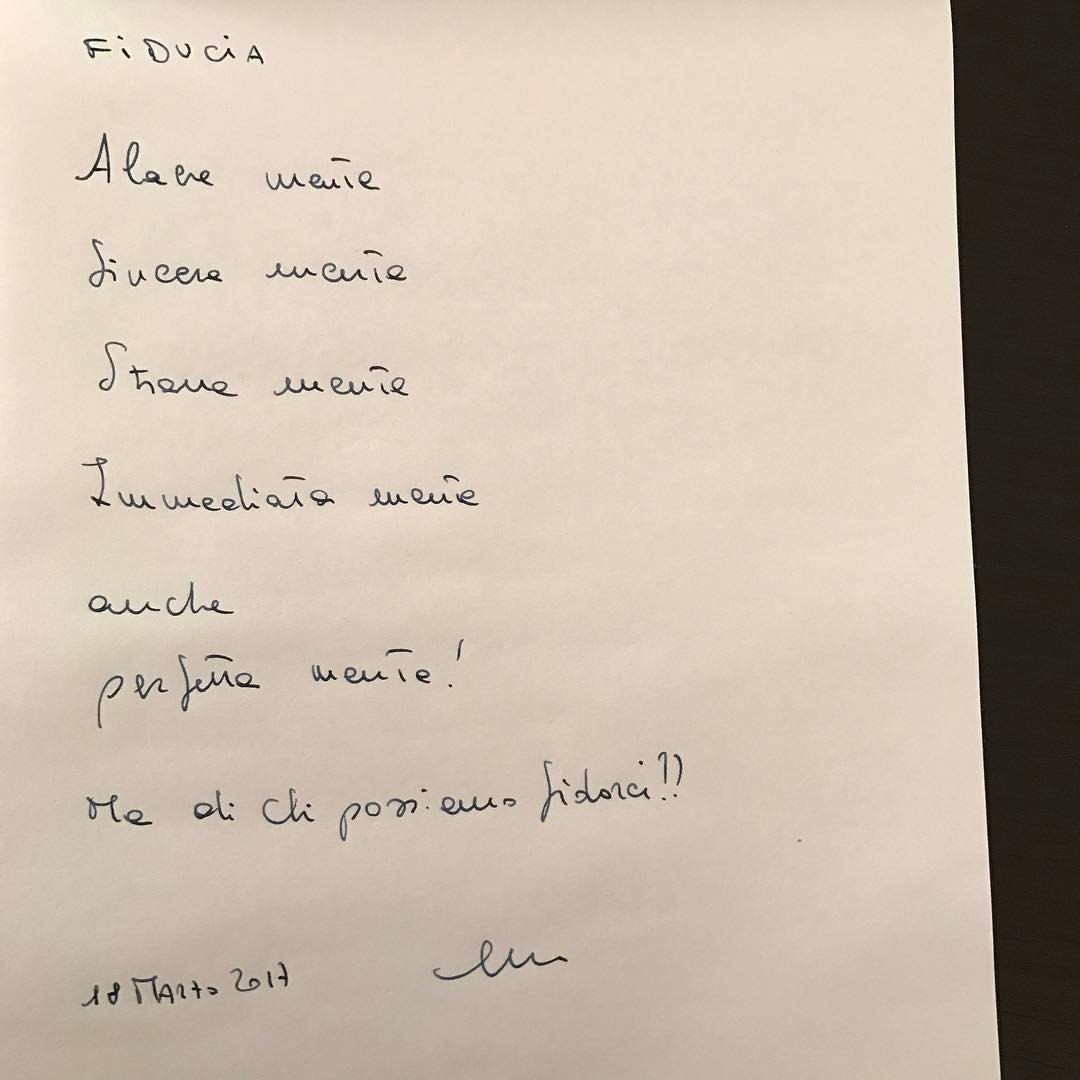 FiDUCiA
Alacre mente
Sincera mente
Strana mente
Immediata mente
anche
perfetta mente!
Ma di chi possiamo fidarci!?
18 MARZO 2017